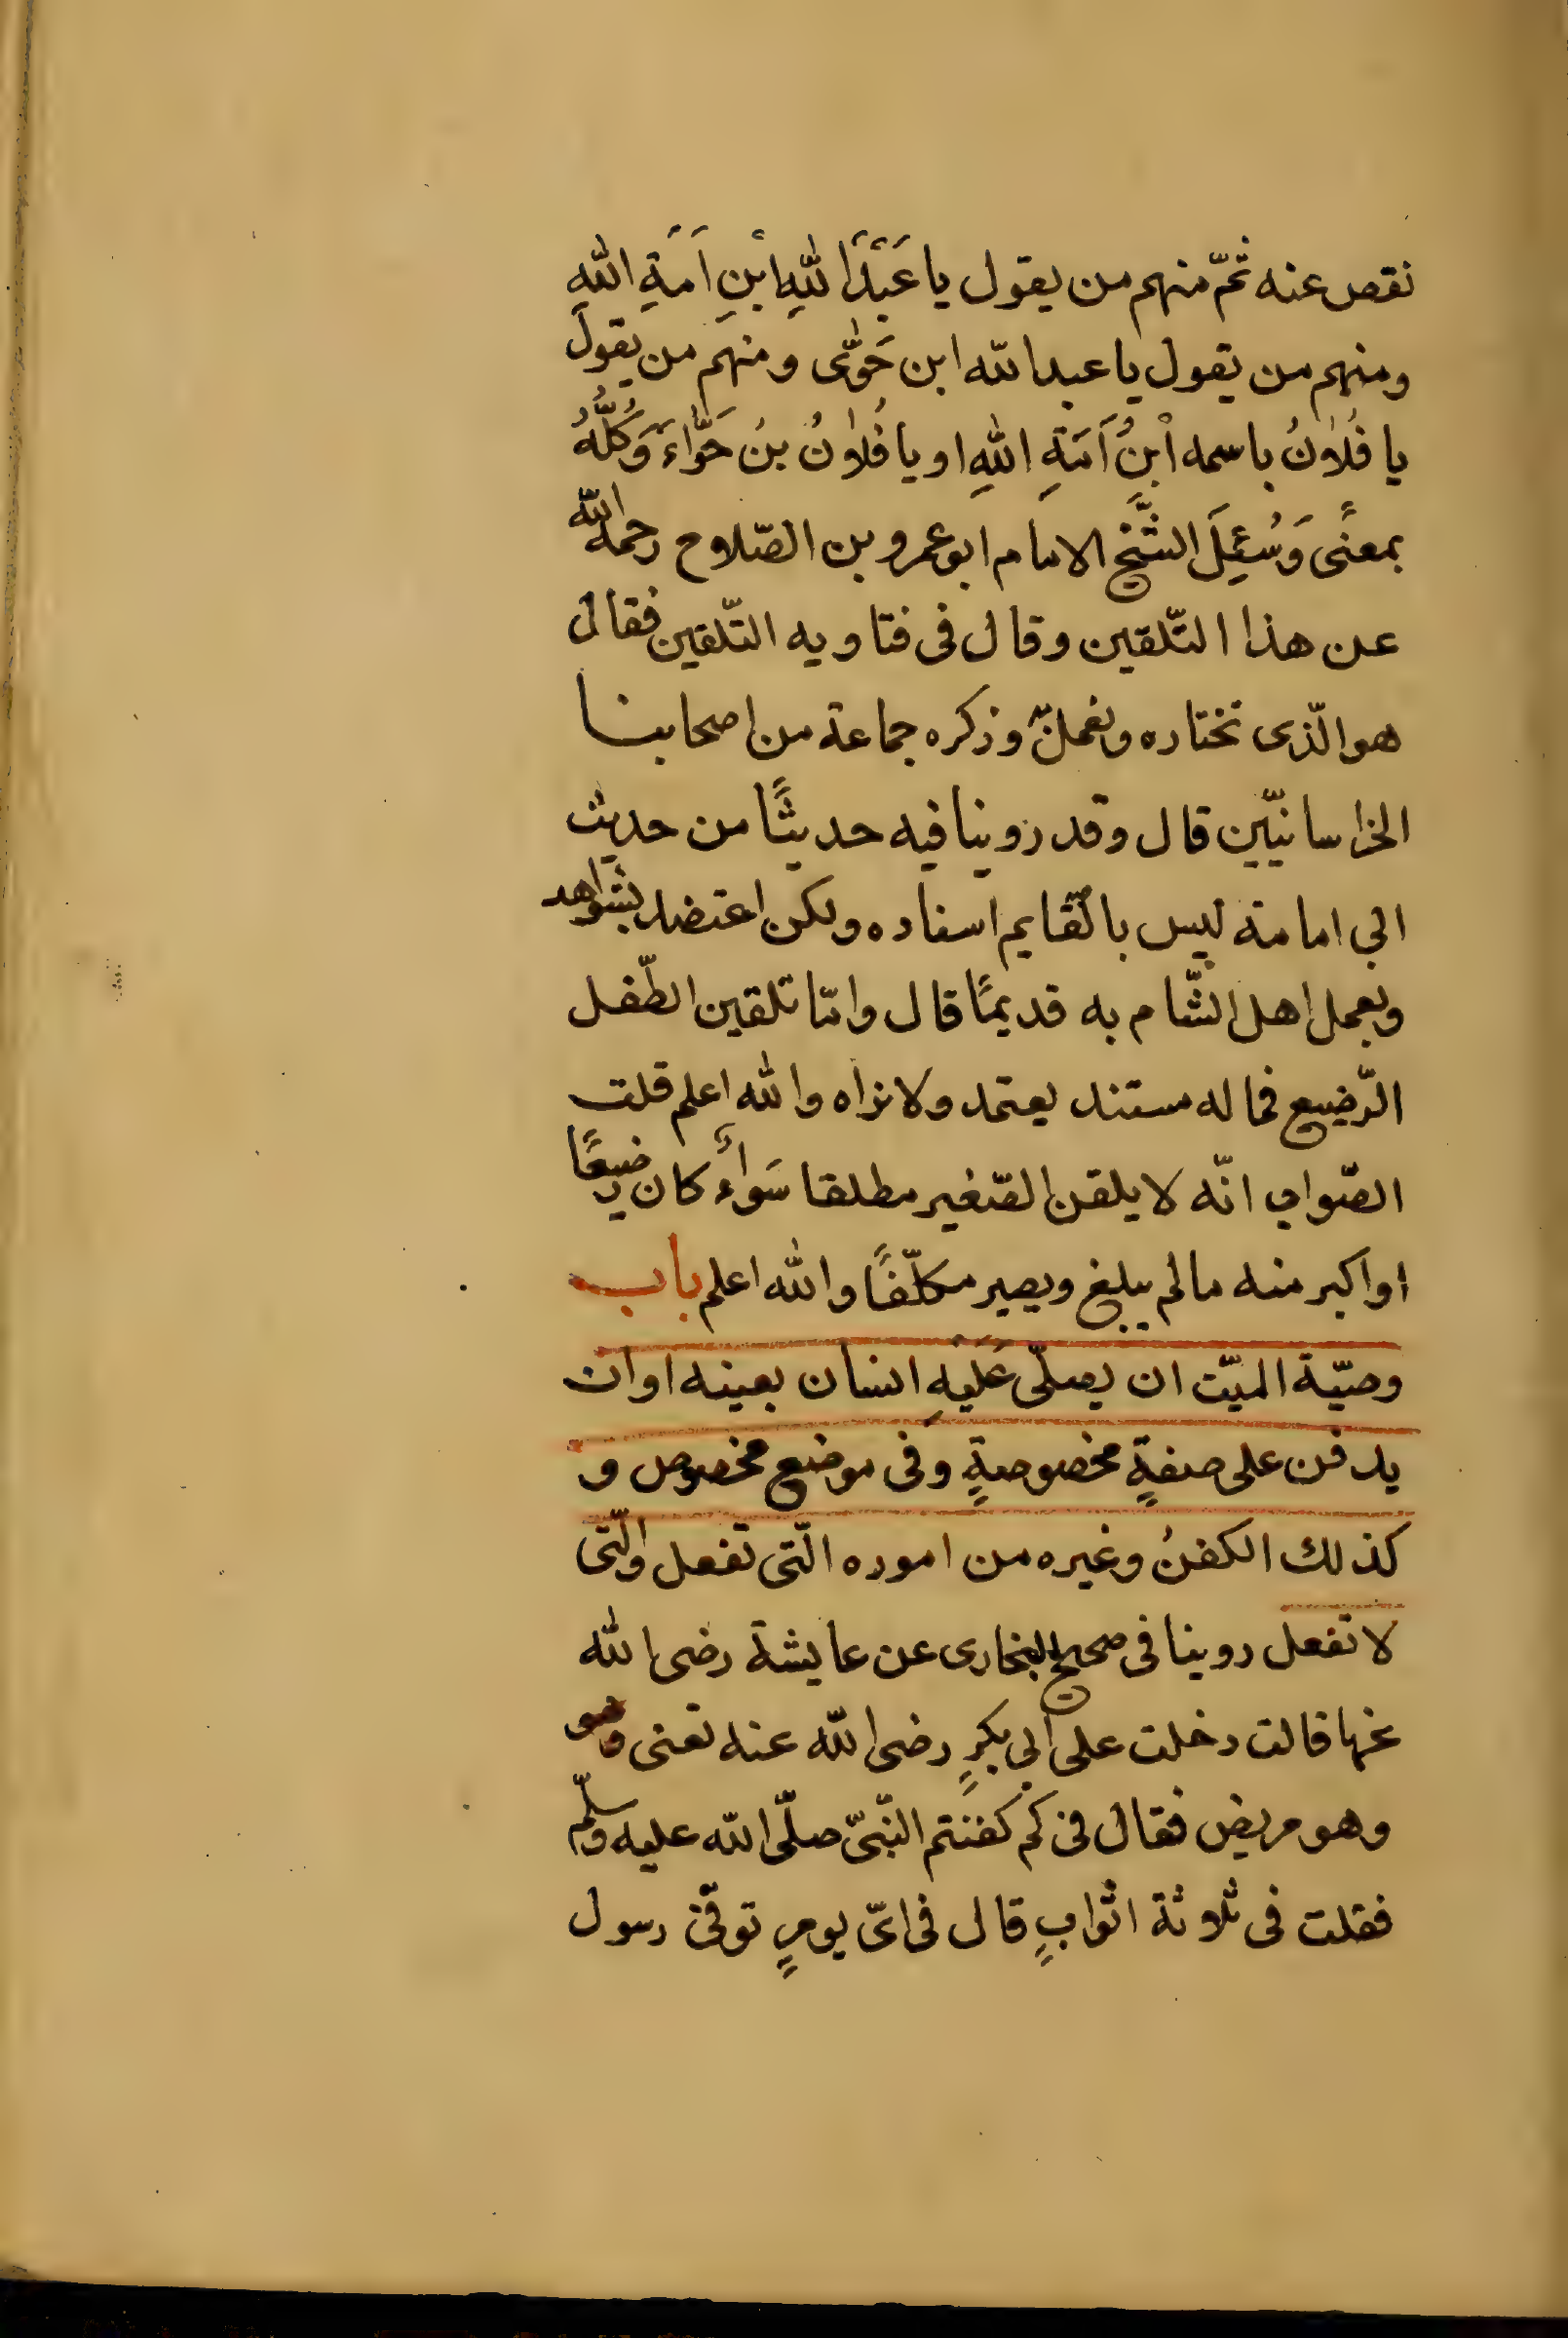 نقص عنه ثمّ منهم من يقول يا عَبْدَ اللهِ ابْنِ اَمَةِ اللهِ
ومنهم من يقول يا عبد الله ابن حَوّٰى ومنهم من يقول
يا فُلاٰنُ باسمه اْبنُ اَمَةِ اللهِ او يا فُلاٰنُ بنُ حَوَّاءَ وَكُلُّهُ
بمعنًى وَسُئِلَ الشَّيخ الامام ابو عمرو بن الصّلاح رحمه الله
عن هذا التّلقين وقال فى فتاويه التّلقين فقال
هو الّذى نختاره ونعمل به وذكره جماعة من اصحابنا
الخراسانيّين قال وقد روينا فيه حديثًا من حديث
ابى امامة ليس بالقايم اسناده ولكن اعتضد بشواهد
وبعمل اهل الشّام به قديمًا قال وامّا تلقين الطّفل
الرّضيع فما له مستند يعتمد ولا نراه والله اعلم قلت
الصّواب انّه لا يلقن الصّغير مطلقا سَواءً كان رضيعًا
او اكبر منه ما لم يبلغ ويصير مكلّفًا والله اعلم باب
وصيّة الميّت ان يصلّى عَلَيْهِ انسان بعينه او ان
يدفن على صفةٍ مخصوصةٍ وفى موضع مخصوص و
كذلك الكفنُ وغيره من اموره الّتى تفعل والّتى
لا تفعل روينا فى صحيح البخارى عن عايشة رضى الله
عنها قالت دخلت على ابى بكرٍ رضى الله عنه تعنى وهو
وهو مريض فقال فى كم كفنتم النّبىّ صلّى الله عليه وسلّم
فقلت فى ثلاثة اثوابٍ قال فى اىّ يومٍ توفّى رسول